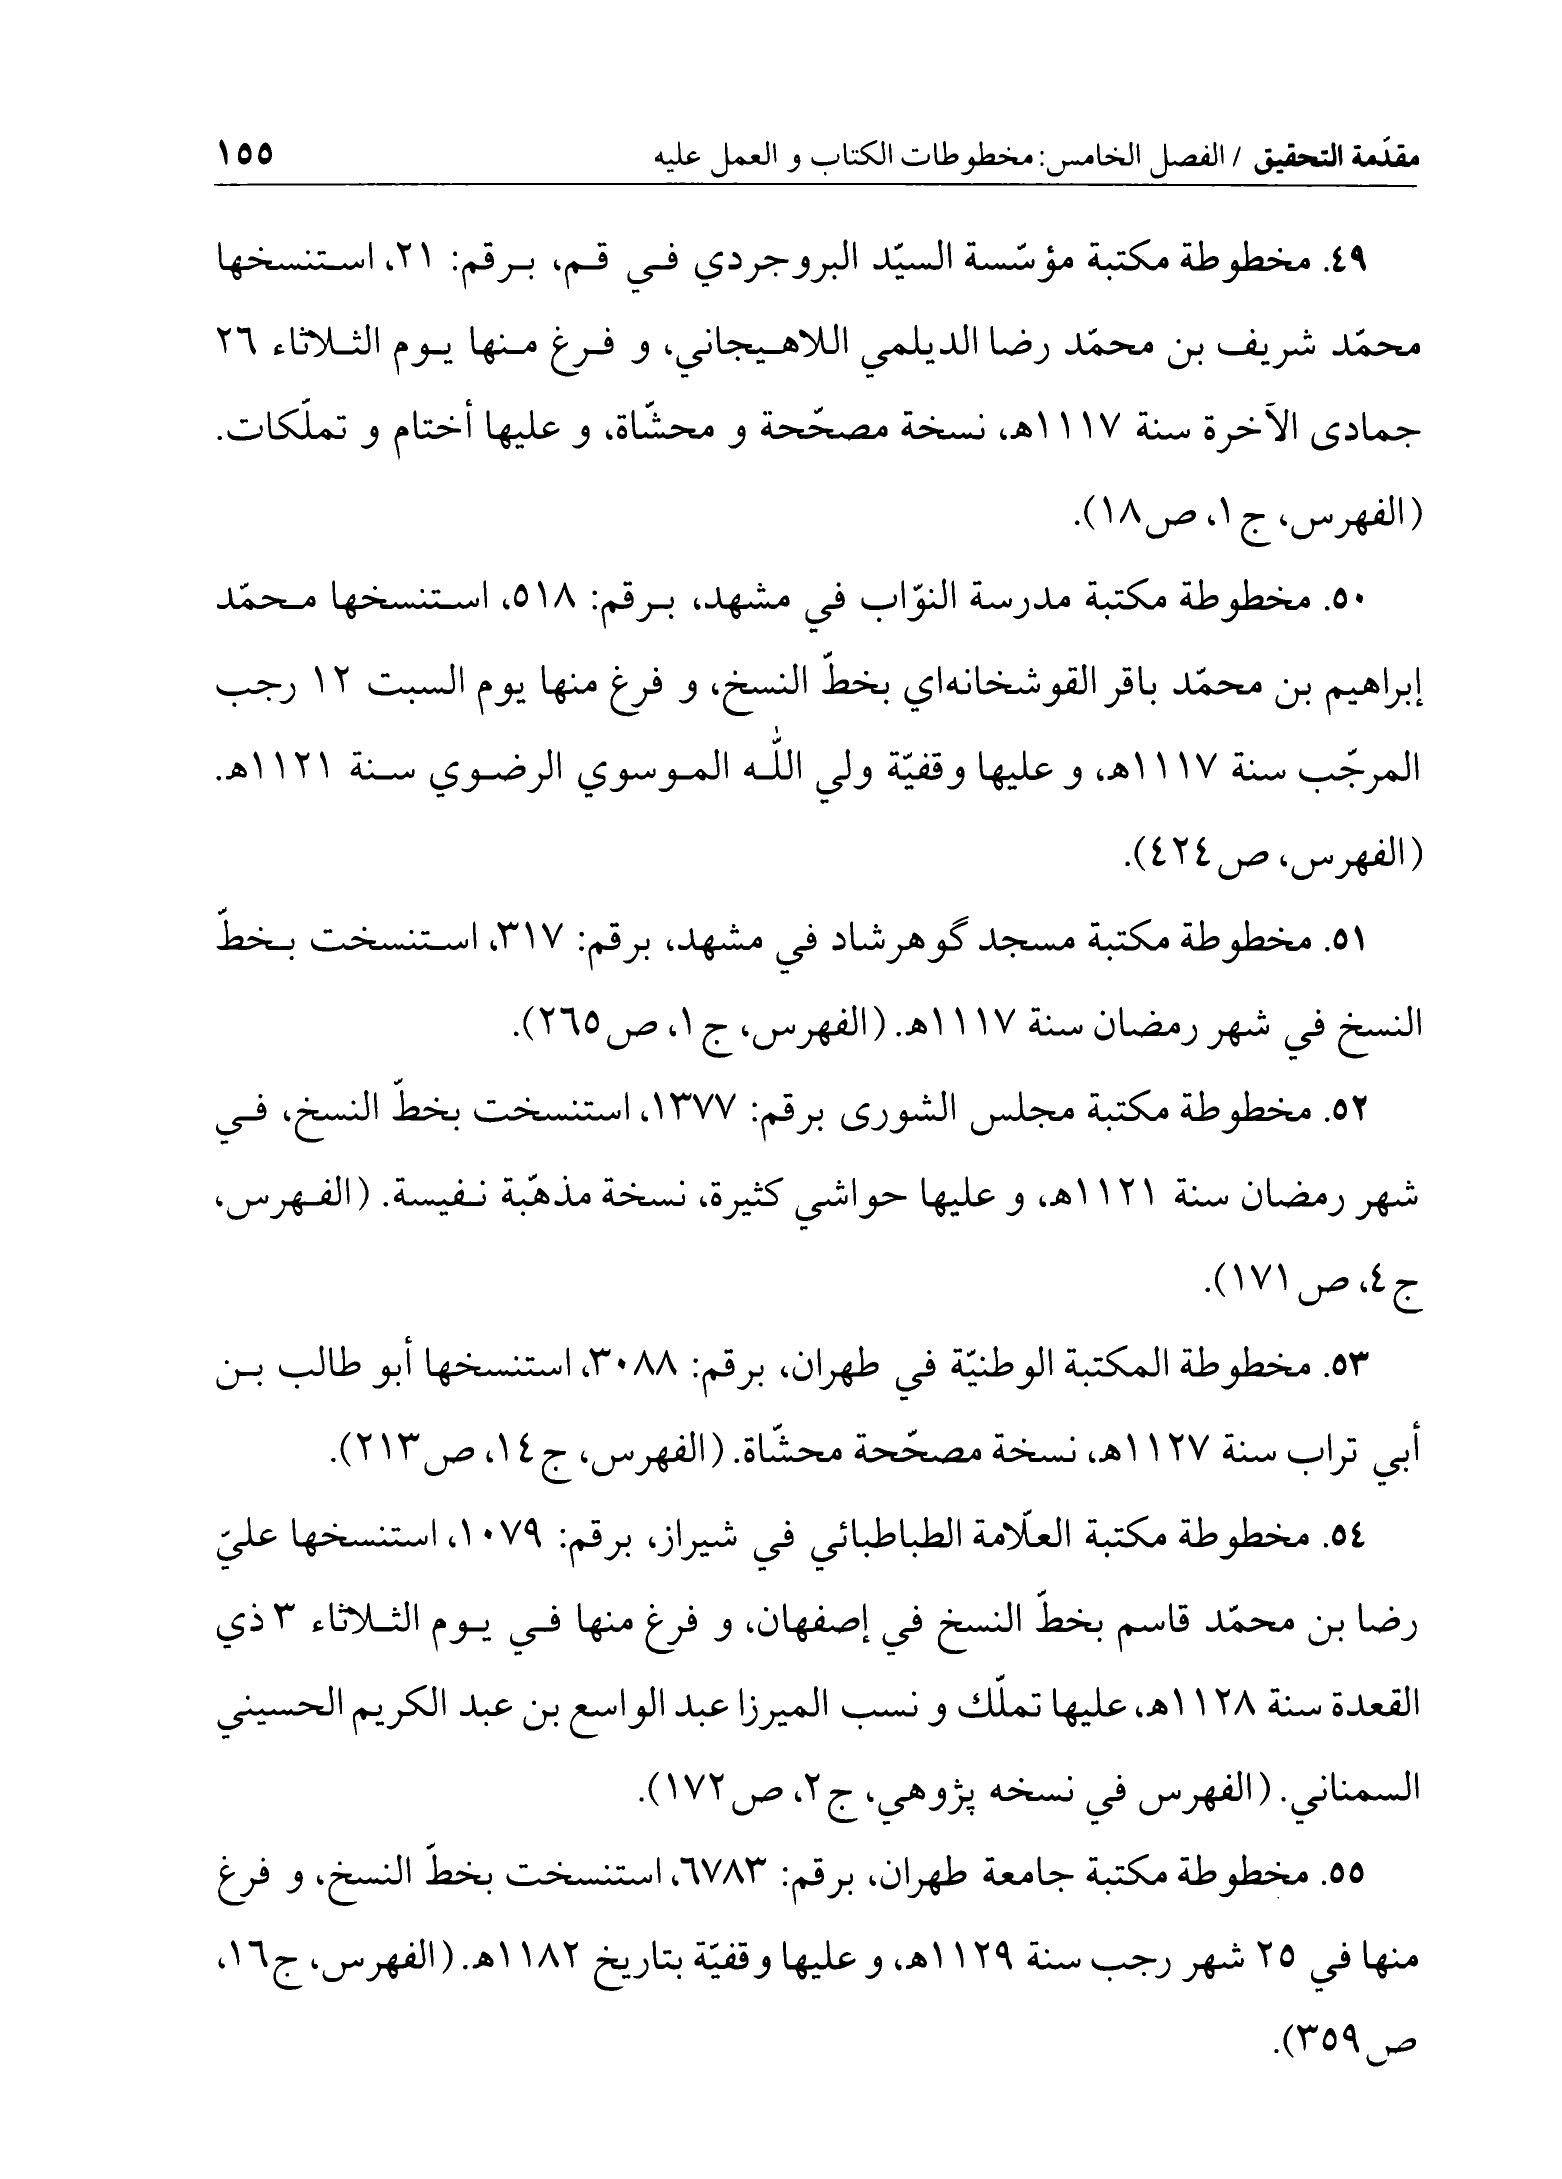 مقدّمة التحقيق / الفصل الخامس: مخطوطات الكتاب و العمل عليه ١٥٥
٤٩. مخطوطة مكتبة مؤسّسة السيّد البروجردي في قم، برقم: ٢١، استنسخها
محمّد شريف بن محمّد رضا الديلمي اللاهيجاني، و فرغ منها يوم الثلاثاء ٢٦
جمادى الآخرة سنة ١١١٧هـ، نسخة مصحّحة و محشّاة، و عليها أختام و تملّكات.
(الفهرس، ج١، ص١٨).
٥٠. مخطوطة مكتبة مدرسة النوّاب في مشهد، برقم: ٥١٨، استنسخها محمّد
إبراهيم بن محمّد باقر القوشخانه‌اي بخطّ النسخ، و فرغ منها يوم السبت ١٢ رجب
المرجّب سنة ١١١٧هـ، و عليها وقفيّة ولي اللّٰه الموسوي الرضوي سنة ١١٢١هـ.
(الفهرس، ص٤٢٤).
٥١. مخطوطة مكتبة مسجد گوهرشاد في مشهد، برقم: ٣١٧، استنسخت بخطّ
النسخ في شهر رمضان سنة ١١١٧هـ. (الفهرس، ج١، ص٢٦٥).
٥٢. مخطوطة مكتبة مجلس الشورى برقم: ١٣٧٧، استنسخت بخطّ النسخ، في
شهر رمضان سنة ١١٢١هـ، و عليها حواشي كثيرة، نسخة مذهّبة نفيسة. (الفهرس،
ج٤، ص١٧١).
٥٣. مخطوطة المكتبة الوطنيّة في طهران، برقم: ٣٠٨٨، استنسخها أبو طالب بن
أبي تراب سنة ١١٢٧هـ، نسخة مصحّحة محشّاة. (الفهرس، ج١٤، ص٢١٣).
٥٤. مخطوطة مكتبة العلّامة الطباطبائي في شيراز، برقم: ١٠٧٩، استنسخها عليّ
رضا بن محمّد قاسم بخطّ النسخ في إصفهان، و فرغ منها في يوم الثلاثاء ٣ ذي
القعدة سنة ١١٢٨هـ، عليها تملّك و نسب الميرزا عبد الواسع بن عبد الكريم الحسيني
السمناني. (الفهرس في نسخه پژوهي، ج٢، ص١٧٢).
٥٥. مخطوطة مكتبة جامعة طهران، برقم: ٦٧٨٣، استنسخت بخطّ النسخ، و فرغ
منها في ٢٥ شهر رجب سنة ١١٢٩هـ، و عليها وقفيّة بتاريخ ١١٨٢هـ. (الفهرس، ج١٦،
ص٣٥٩).